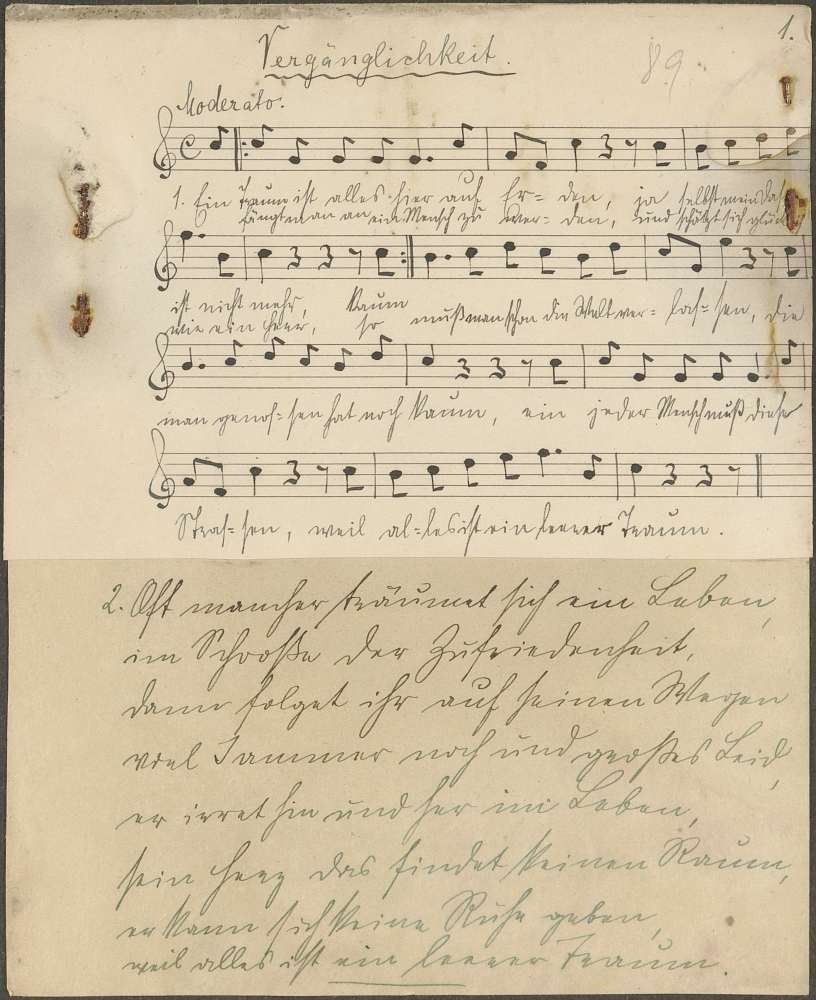 1.
Vergänglichkeit.
89.
Moderato.
1. Ein Traum ist alles hier auf Er= den, ja selbst mein Das
fängt man an ein Mensch zu wer= den, und schätzt sich glück
ist nicht mehr, kaum
wie ein Herr, so mußman schon die Welt ver= las= sen, die
man genos= sen hat noch kaum, ein jeder Mensch muß diese
Stras= sen, weil al= les ist ein leerer Traum.
2. Oft mancher träumet sich ein Leben,
im Schooße der Zufriedenheit,
dann folget ihr auf seinen Wegen
viel Jammer noch und großes Leid,
er irret hin und her im Leben,
sein Herz das findet keinen Raum,
er kann sich keine Ruhe geben,
weil alles ist ein leerer Traum.